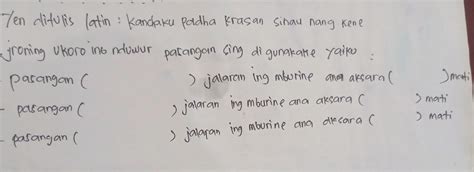 Yen ditulis latin : Kandaku padha krasan sinau nang kene
jroning ukoro ing nduwur pasangan sing di gunakake yaiko :
- pasangan ( ) jalaran ing mburine ana aksara ( ) mati
- pasangan ( ) jalaran ing mburine ana aksara ( ) mati
- pasangan ( ) jalaran ing mburine ana aksara ( ) mati